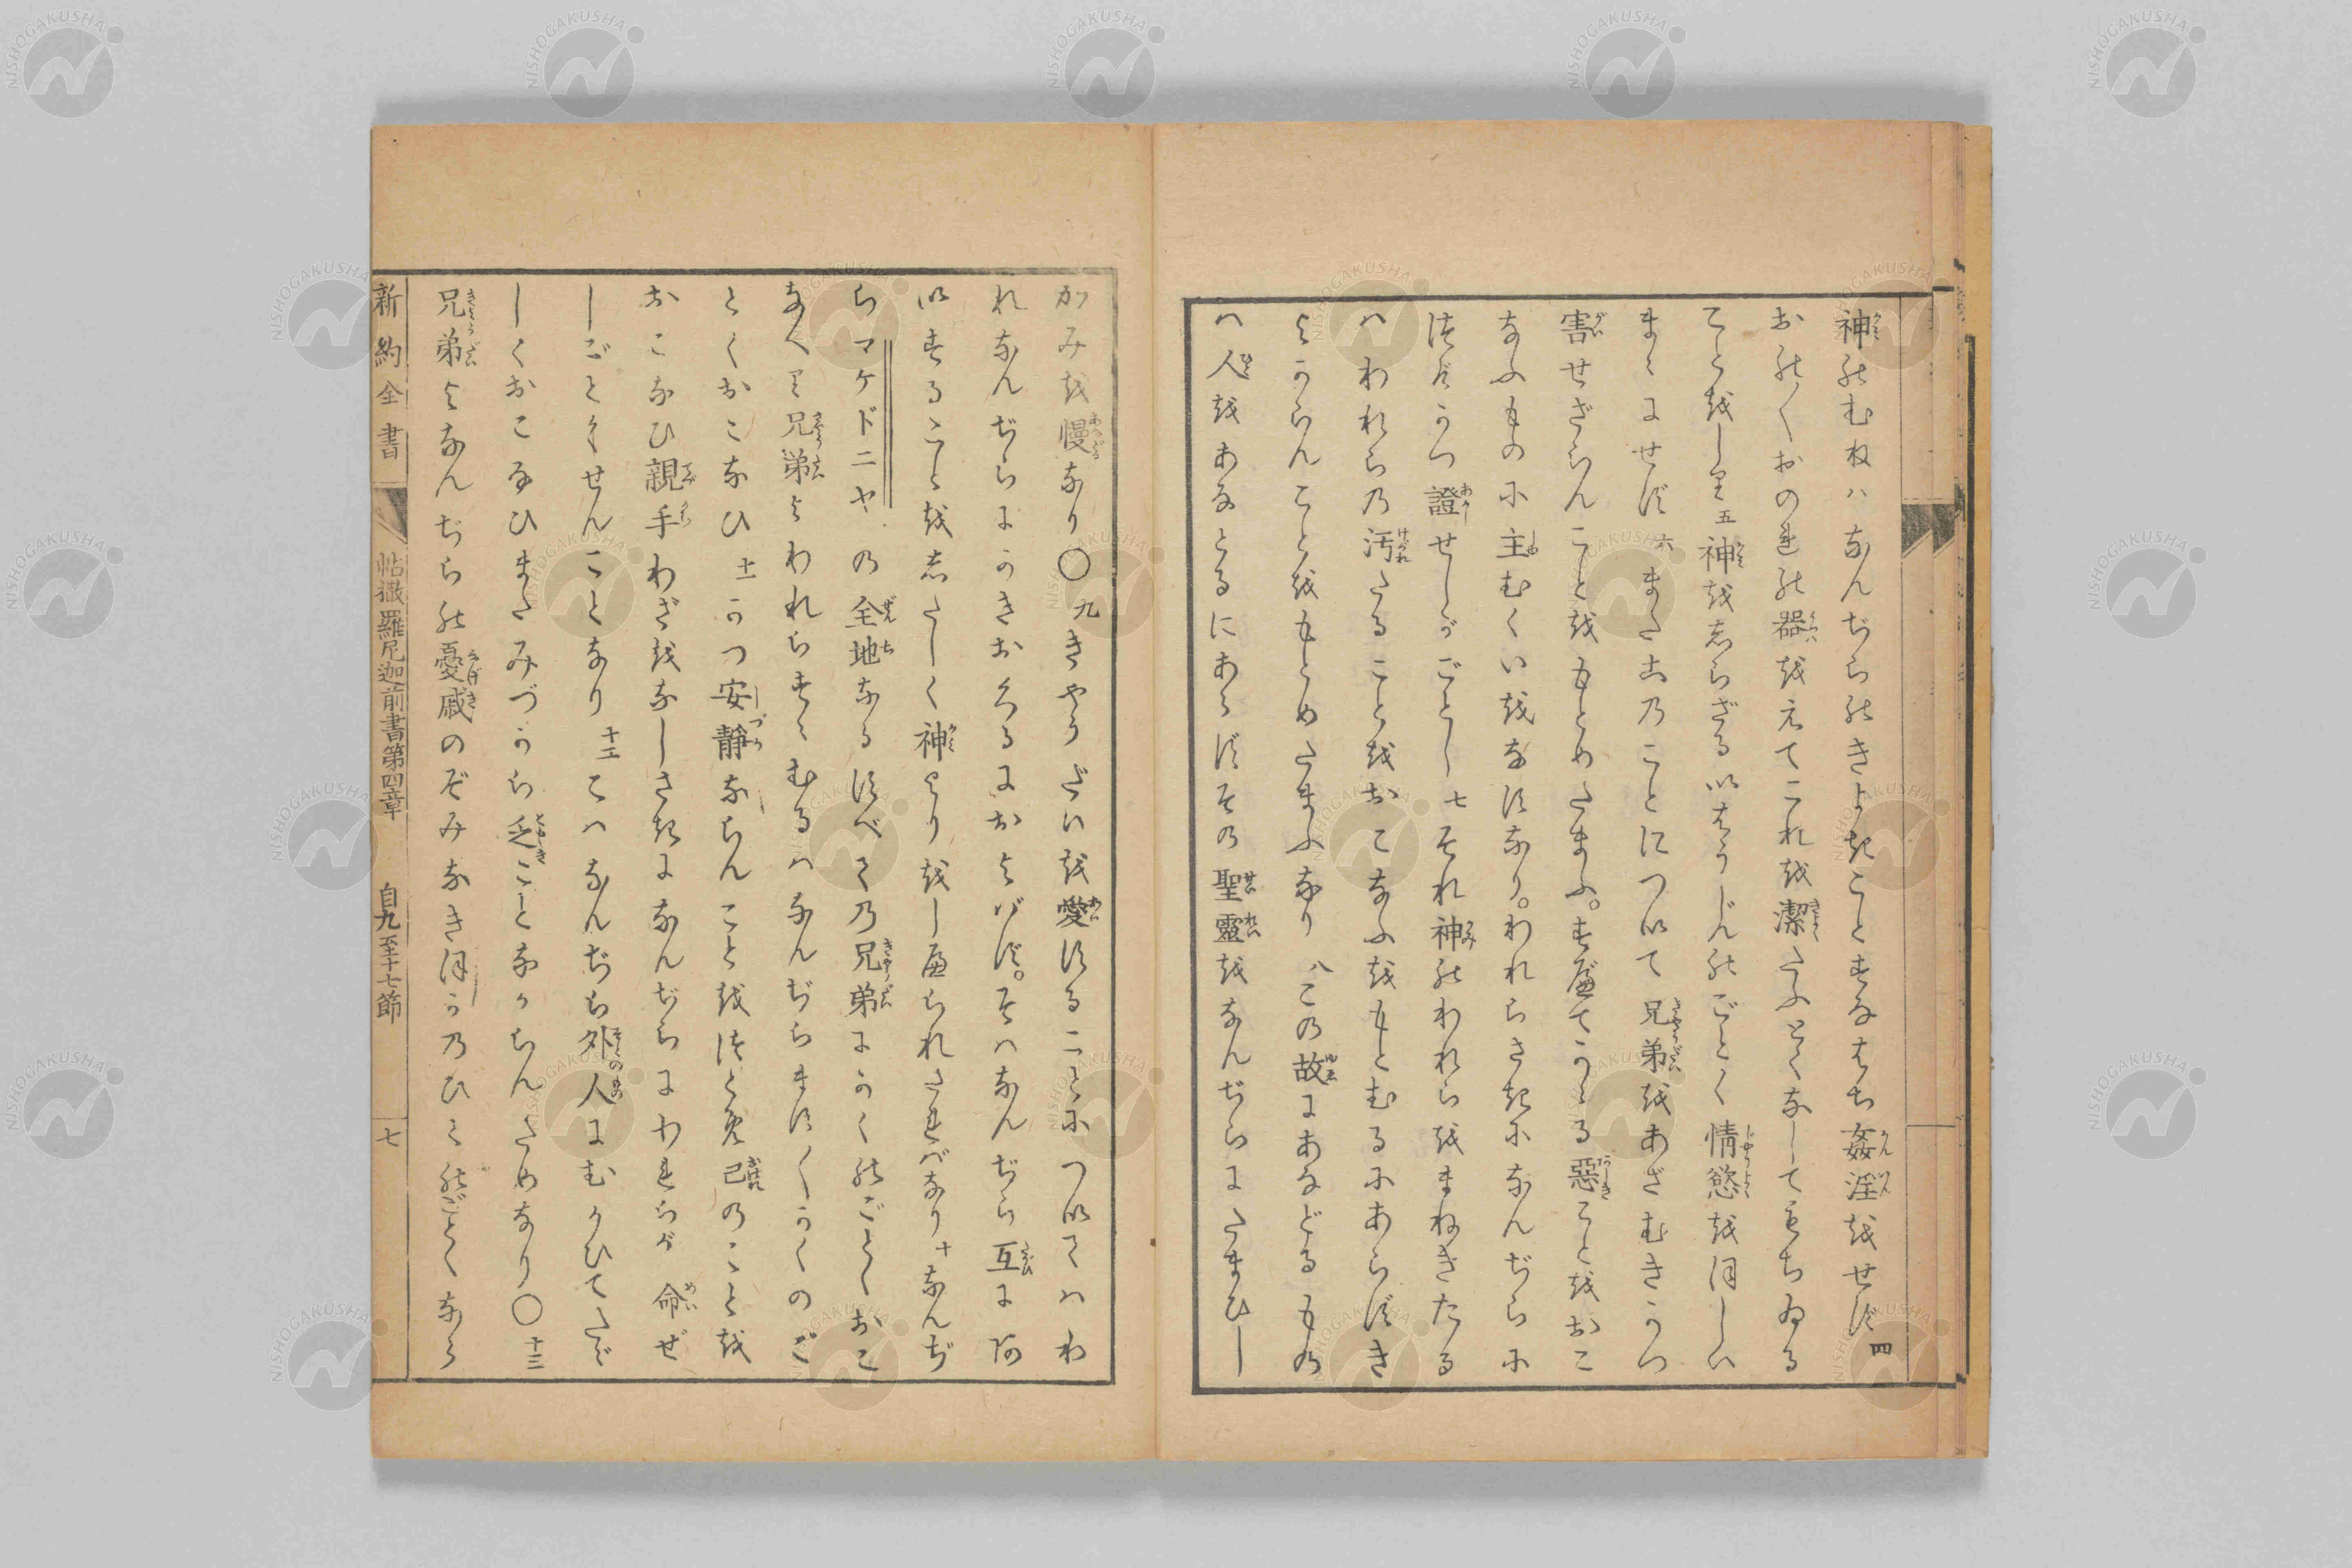 神のむねハなんぢらのきよきことすなはち姦淫をせず四
おのゝおのれの器をえてこれを潔たふとくなしてもちゐる
ことをしり五神をしらざるいはうじんのごとく情慾をほしい
まゝにせず六またこのことについて兄弟をあざむきかつ
害せざらんことをもとめたまふ。すべてかゝる惡ことをおこ
なふものに主むくいをなすなり。われらさきになんぢらに
つげかつ證せしがごとし七それ神のわれらをまねきたる
ハわれらの汚たることをおこなふをもとむるにあらずき
よからんことをもとめたまふなり八この故にあなどるもの
ハ人をあなとるにあらずその聖靈をなんぢらにたまひし
かみを慢なり〇九きやうだいを愛することについてハわ
れなんぢらにかきおくるにおよバず。そハなんぢら互に
いすることをしたしく神よりをしへられたれバなり十なんぢ
らマケドニヤの全地なるすべての兄弟にかくのごとくおこ
なへり兄弟よわれらすゝむるハなんぢらますゝかくのご
とくおこなひ十一かつ安靜ならんことをつとめ己のことを
おこなひ親手わざをなしさきになんぢらにわれらが命ぜ
しごとくせんことなり十二こハなんぢら外人にむかひてたゞ
しくおこなひまたみづから乏ことなからんためなり〇十三
兄弟よなんぢらの憂戚ののぞみなきほかのひとのごとくなら
新約全書
帖撒羅尼迦前書第四章
自九至十七節
七